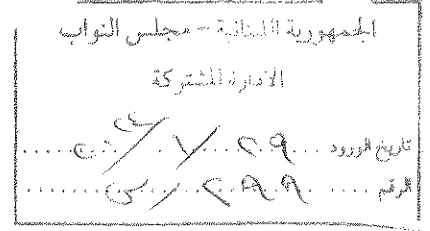 الجمهورية اللبنانية - مجلس النواب
الادارة المشتركة
تاريخ الورود ٢٩ / ٧ /
الرقم ٢٩٩ / س